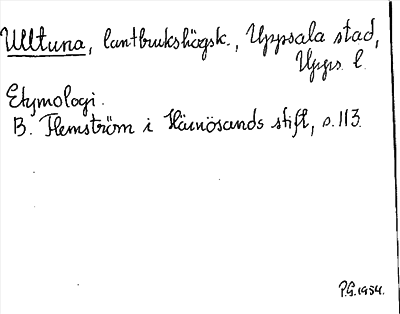 Ulltuna, lantbrukshögsk., Uppsala stad,
Upps. l.
Etymologi.
B. Flemström i Härnösands stift, s. 113.
P.G. 1954.